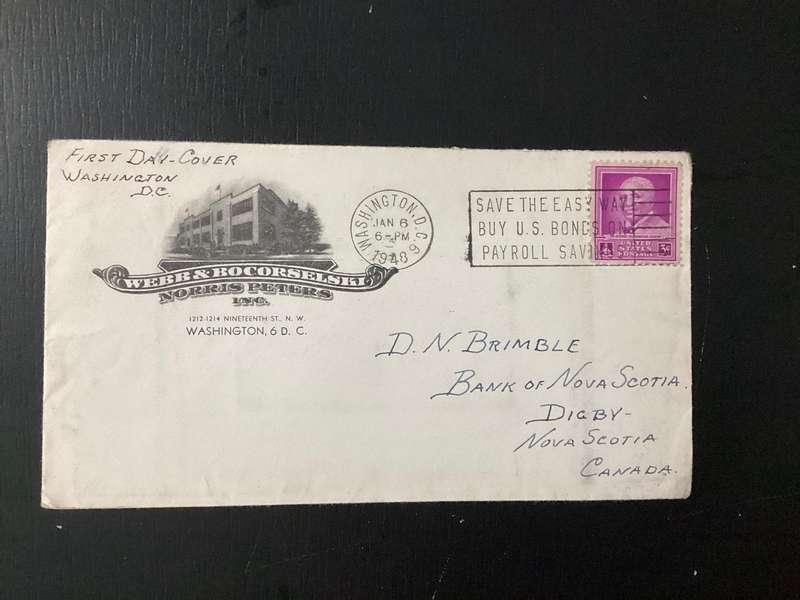 FIRST DAY-COVER
WASHINGTON
D.C.
WEBB & BOCORSELSKI
NORRIS PETERS
INC.
1212-1214 NINETEENTH ST., N. W.
WASHINGTON, 6 D. C.
WASHINGTON, D.C. 6
JAN 6
6-PM
1948
SAVE THE EASY WAY
BUY U.S. BONDS ON
PAYROLL SAV
UNITED
STATES
POSTAGE
3¢
D. N. BRIMBLE
BANK OF NOVA SCOTIA.
DIGBY-
NOVA SCOTIA
CANADA.